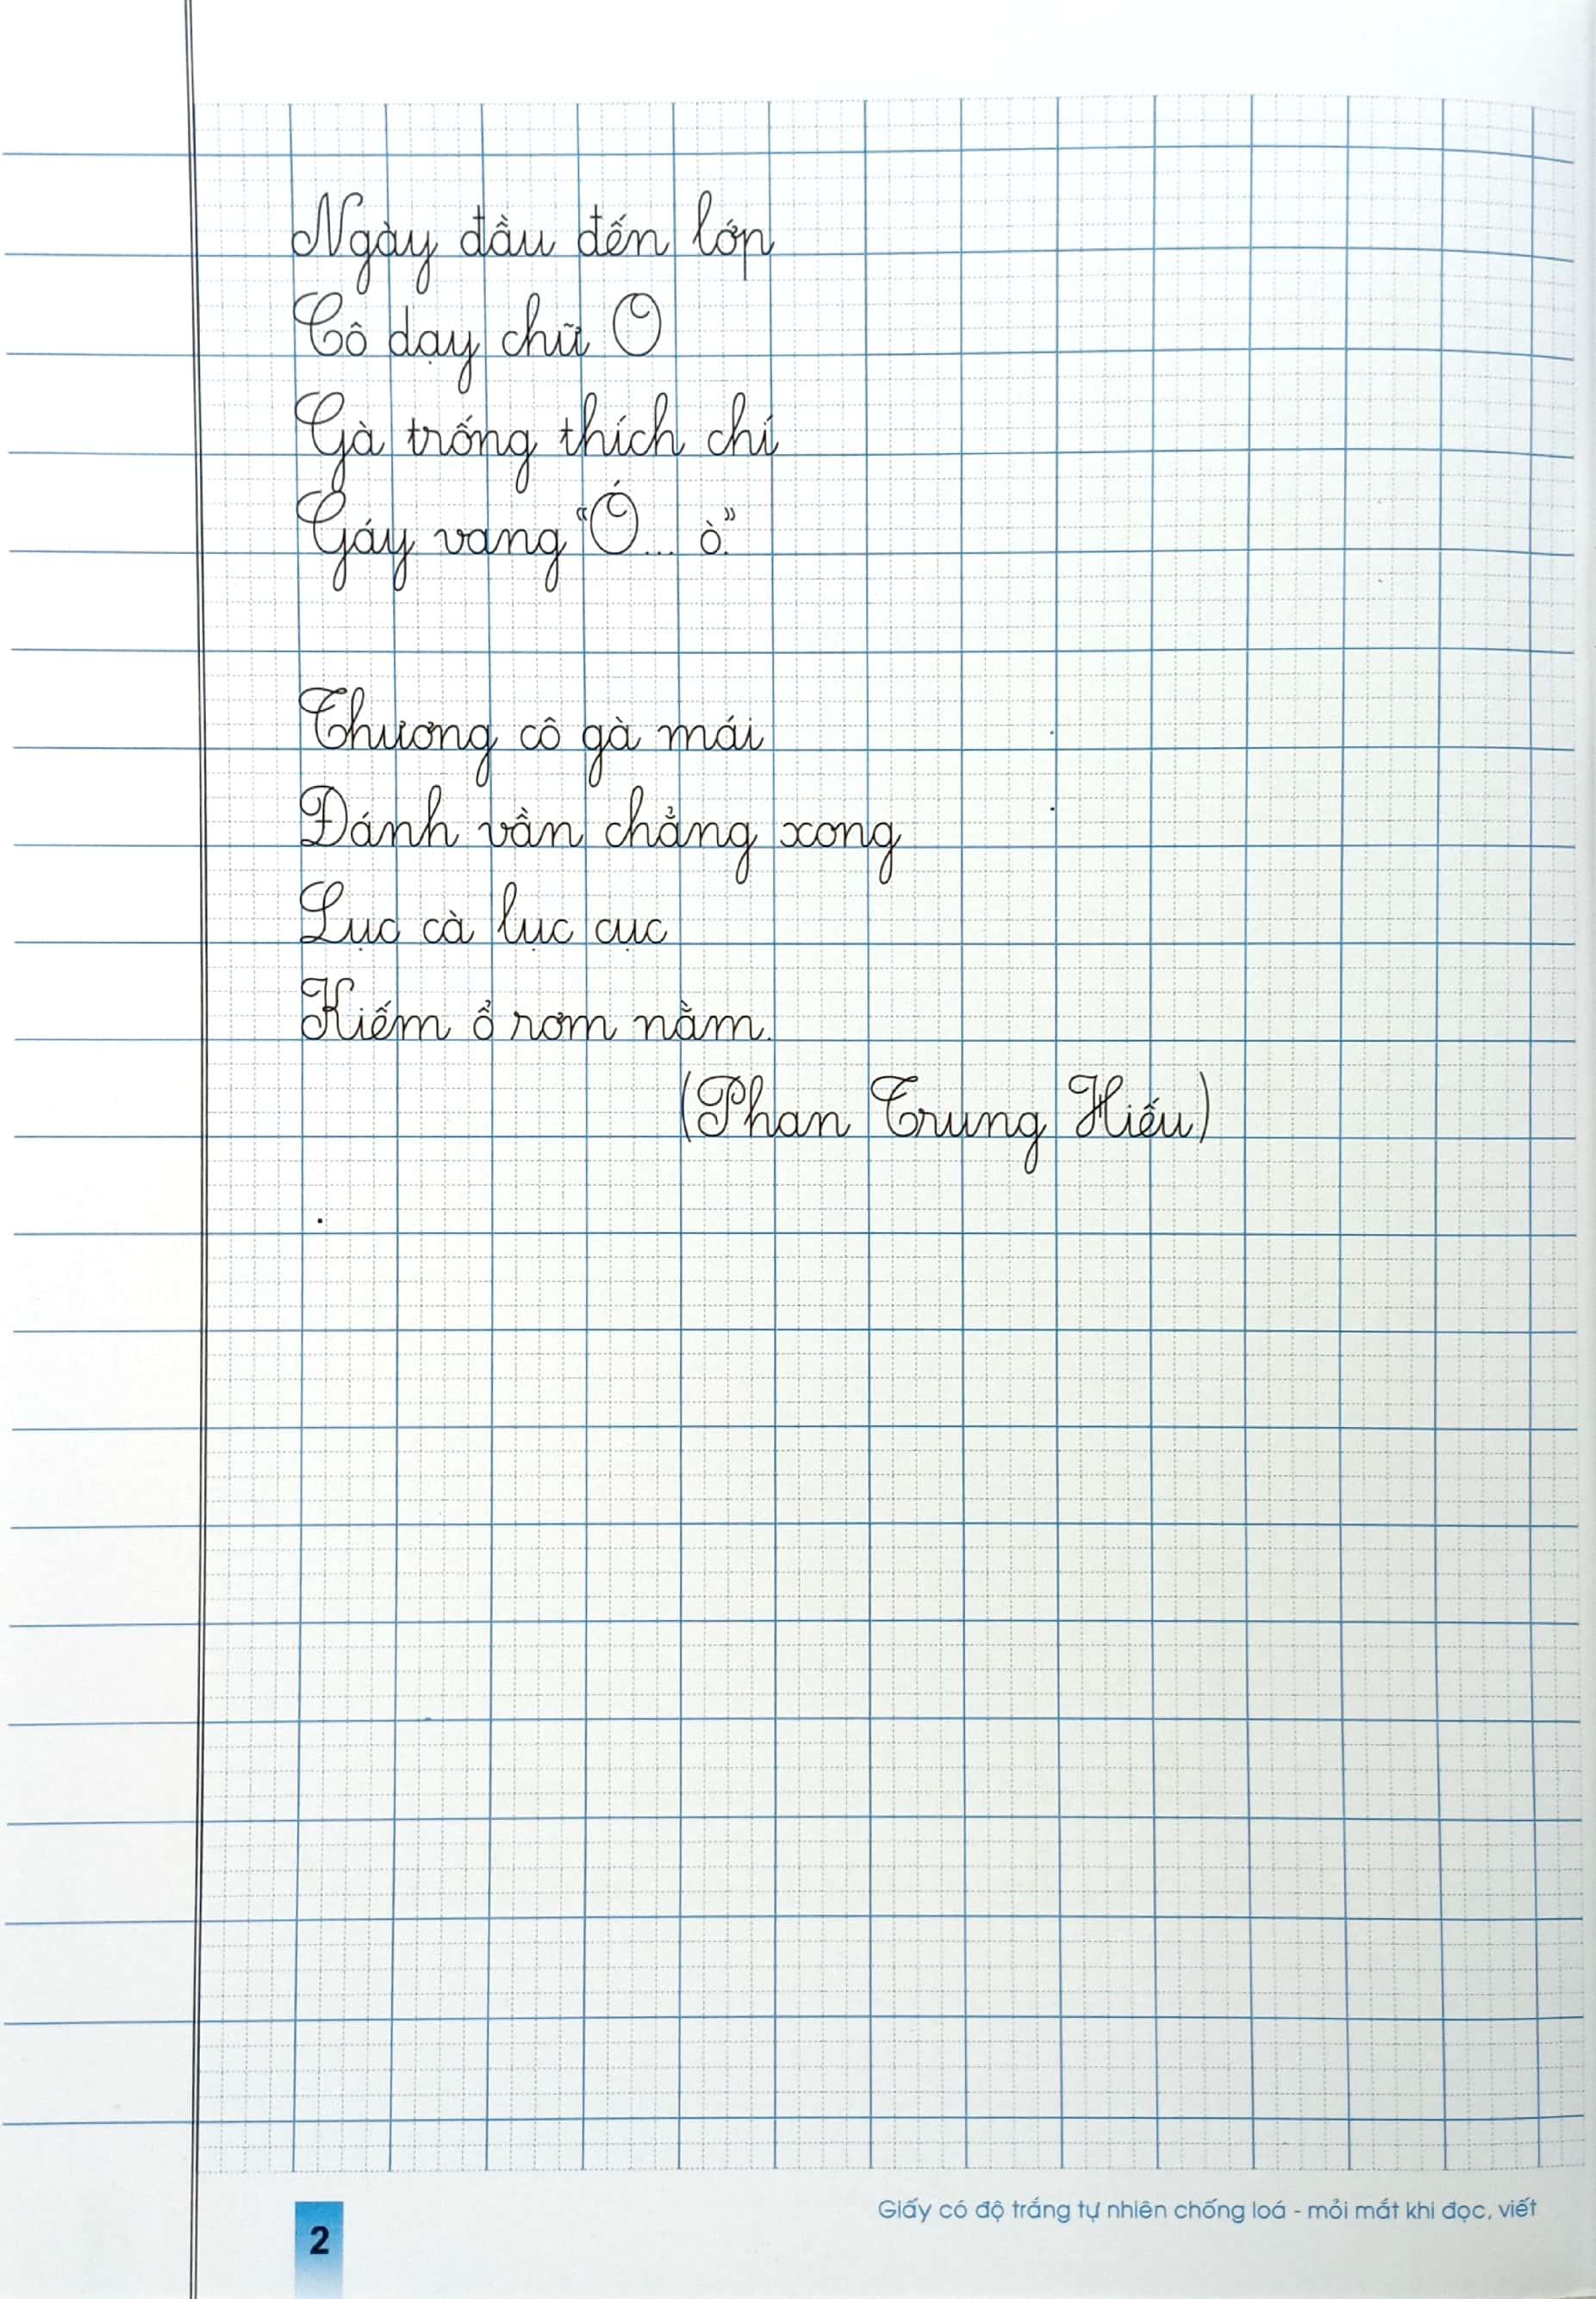 Ngày đầu đến lớp
Cô dạy chữ O
Gà trống thích chí
Gáy vang “Ó... ò.”
Thương cô gà mái
Đánh vần chẳng xong
Lục cà lục cục
Kiếm ổ rơm nằm.
(Phan Trung Hiếu)
Giấy có độ trắng tự nhiên chống loá - mỏi mắt khi đọc, viết
2